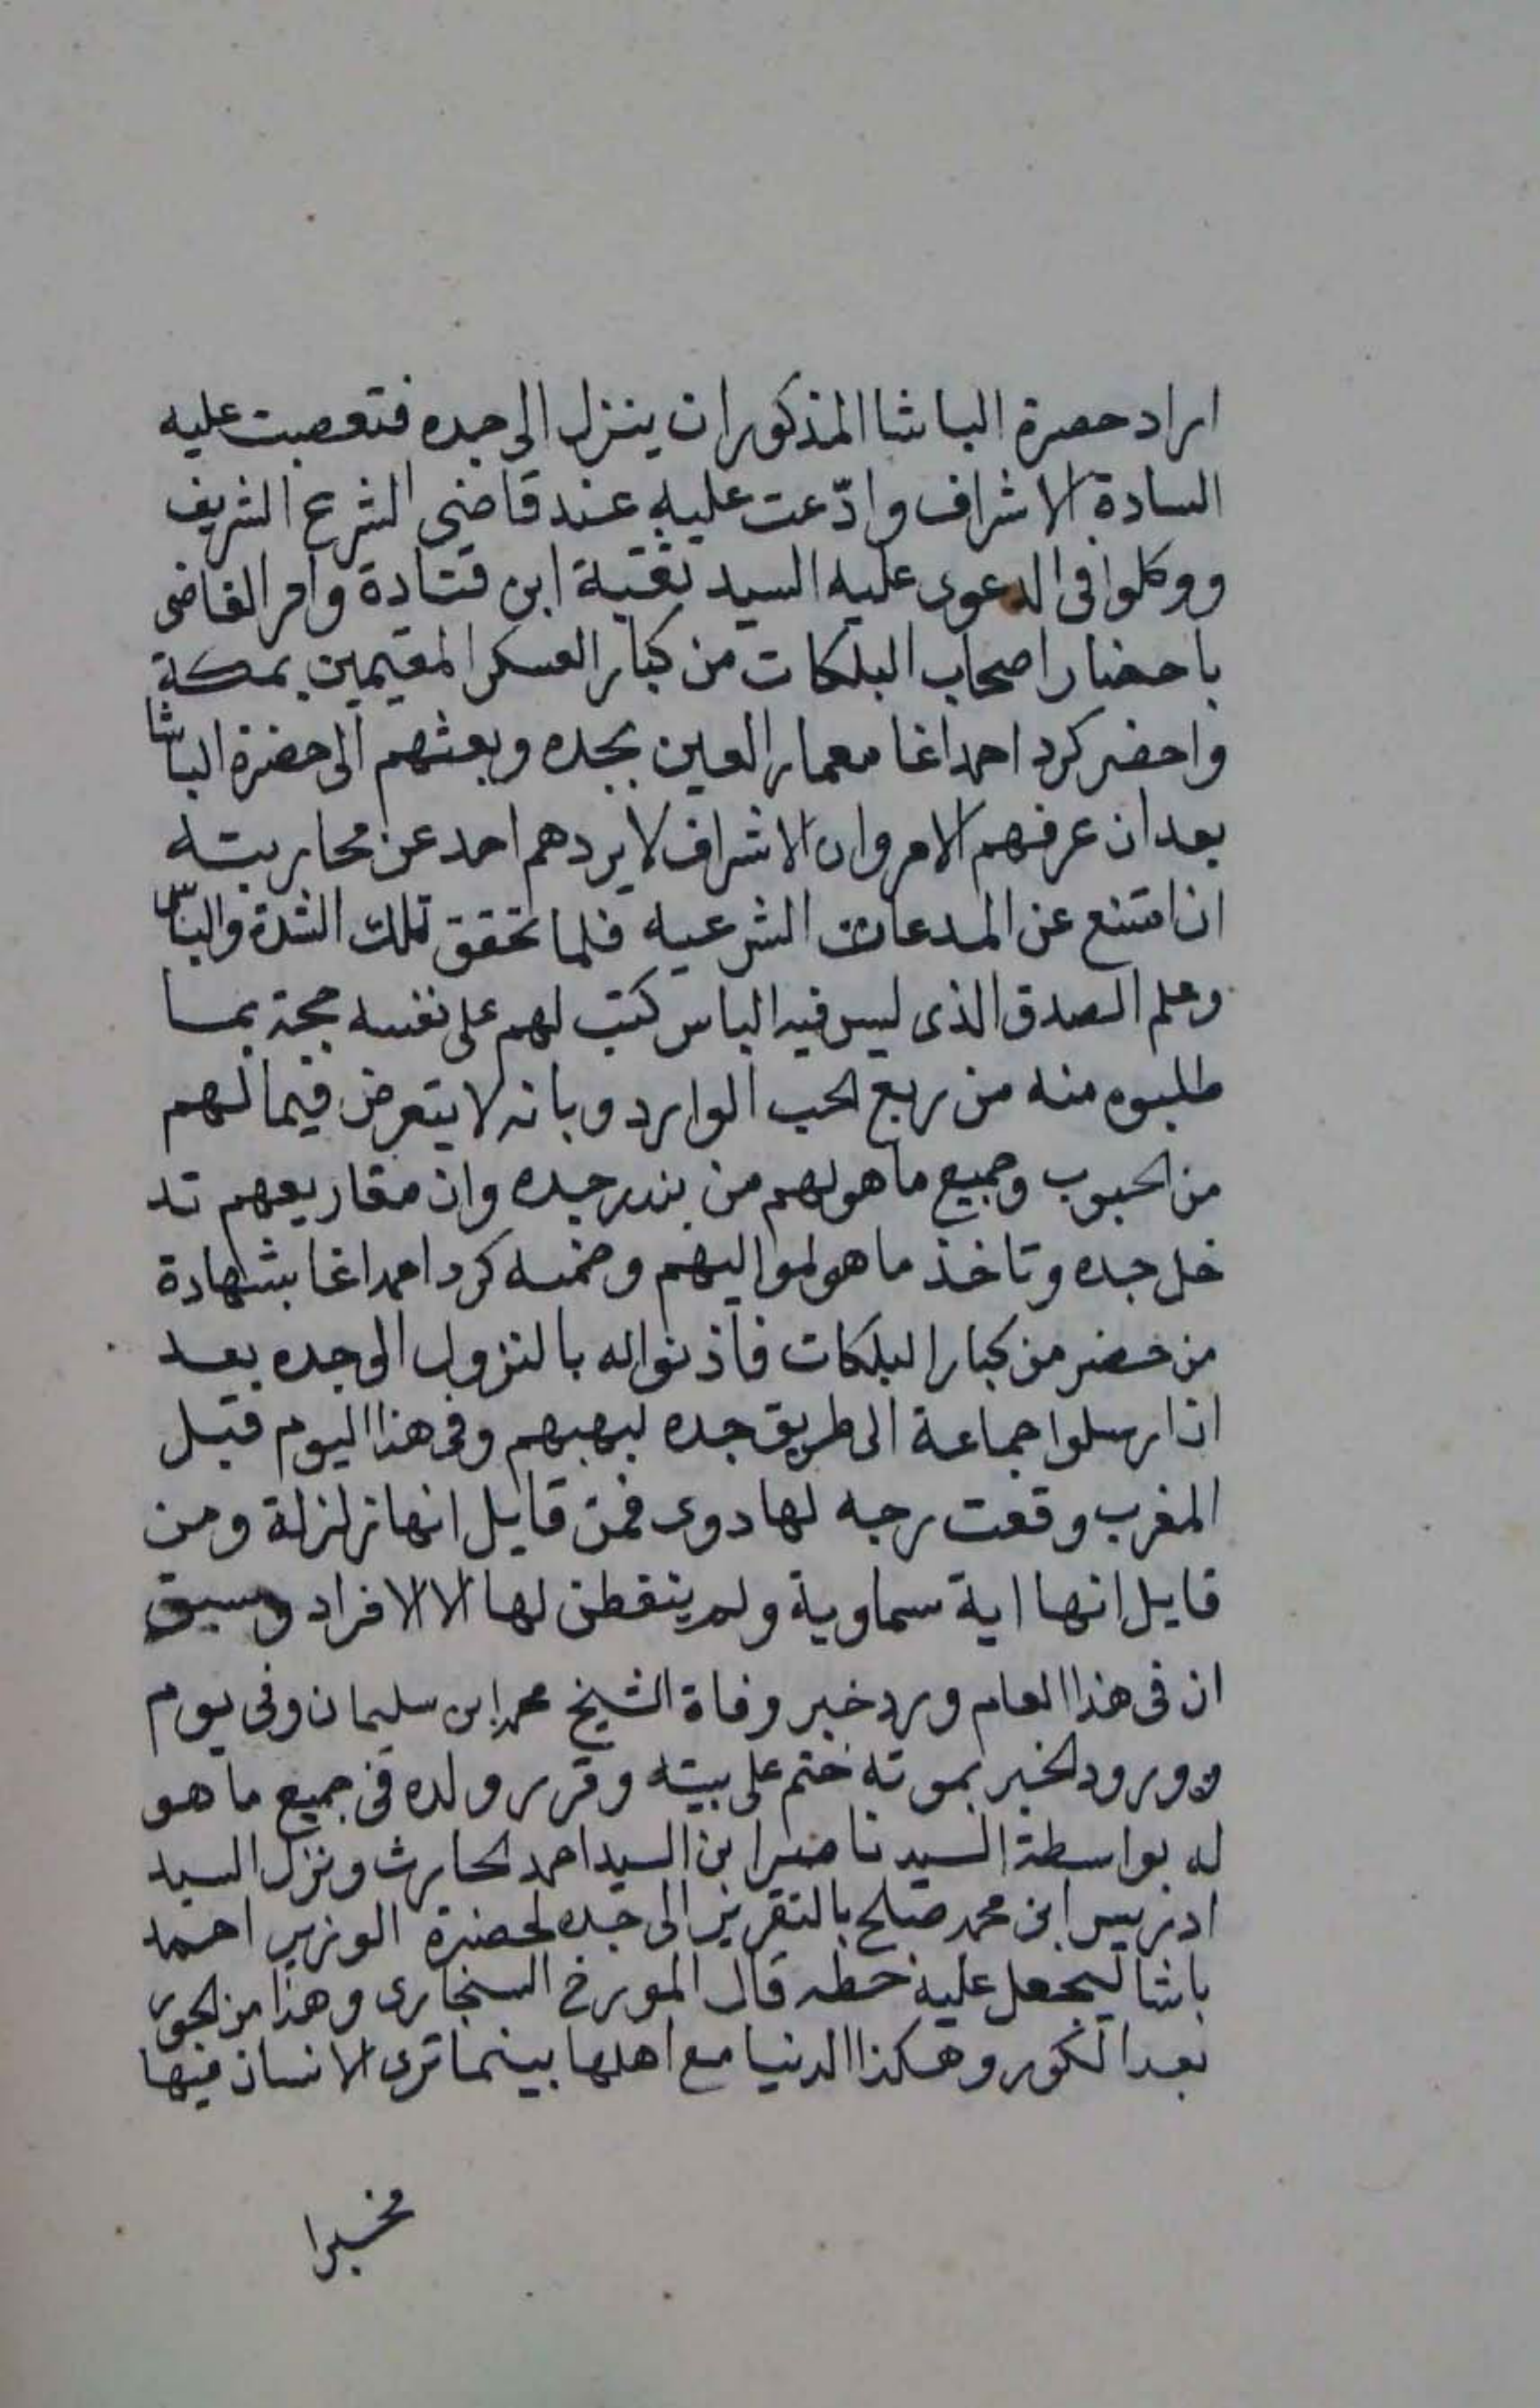 اراد حصرة الباشا المذكور ان ينزل الى جده فتعصبت عليه
السادة الاشراف وادّعت عليه عند قاضى الشرع الشريف
ووكلوا فى الدعوى عليه السيد ثقبة ابن قتادة وامر القاضى
باحضار اصحاب البلكات من كبار العسكر المقيمين بمكة
واحضر كرد احمد اغا معمار العين بجده وبعثهم الى حضرة الباشا
بعد ان عرفهم الامر وان الاشراف لا يردهم احد عن محاربته
ان امتنع عن المدعات الشرعيه فلما تحقق تلك الشدة والباس
وعلم الصدق الذى ليس فيه الباس كتب لهم على نفسه حجة بما
طلبوه منه من ربع الحب الوارد وبانه لا يتعرض فيما لهم
من الحبوب وجميع ما هو لهم من بندر جده وان مقاريعهم تد
خل جده وتاخذ ما هو لمواليهم وضمنه كرد احمد اغا بشهادة
من حضر من كبار البلكات فاذنوا له بالنزول الى جده بعد
ان ارسلوا جماعة الى طريق جده لبهبهم وفى هذا اليوم قبل
المغرب وقعت رجه لها دوى فمن قايل انها زلزلة ومن
قايل انها اية سماوية ولم يتفطن لها الا الافراد وسبق
ان فى هذا العام ورد خبر وفاة الشيخ محمد ابن سليمان وفى يوم
ورود الخبر بموته ختم على بيته وقرر ولده فى جميع ما هو
له بواسطة السيد ناصر ابن السيد احمد الحارث ونزل السيد
ادريس ابن محمد صلح بالتقرير الى جده لحضرة الوزير احمد
باشا ليجعل عليه خطه قال المورخ السنجارى وهذا من الحور
بعد الكور وهكذا الدنيا مع اهلها بينما ترى الانسان فيها
مخبرا